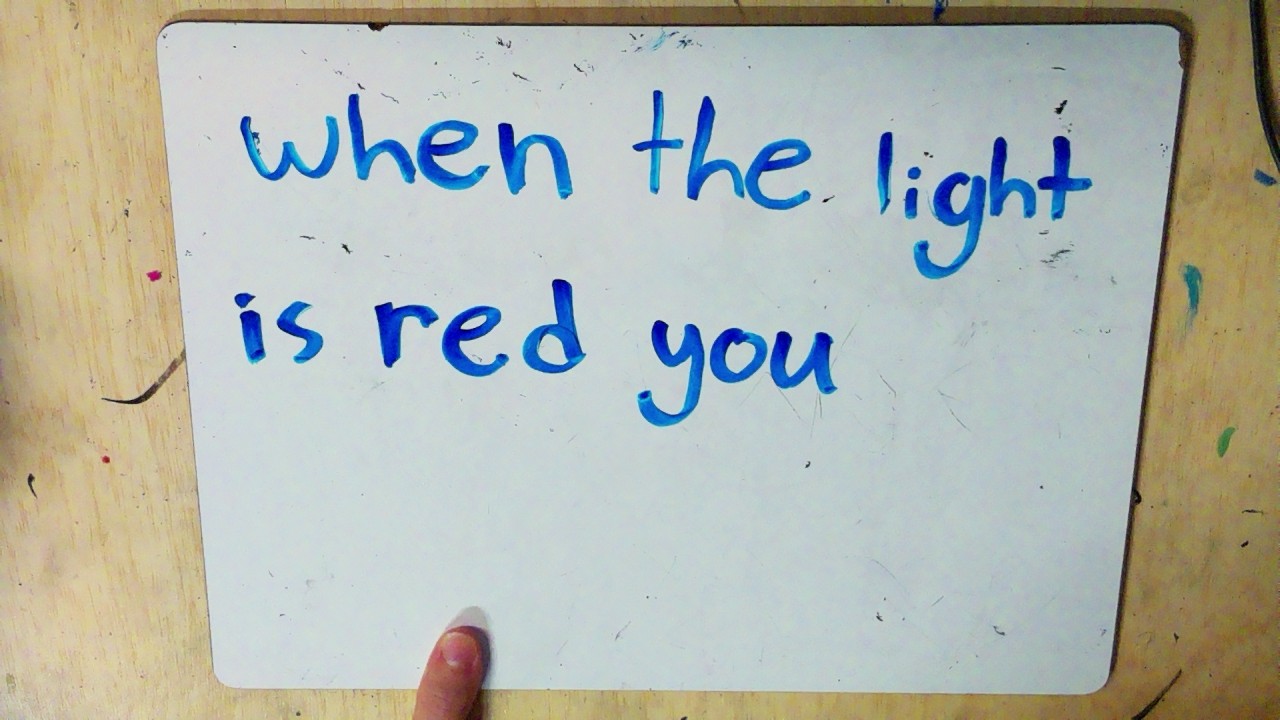 when the light
is red you